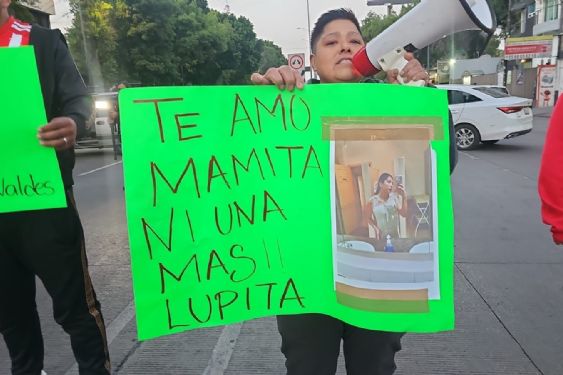 TE AMO
MAMITA
NI UNA
MAS !!
LUPITA
Valdes